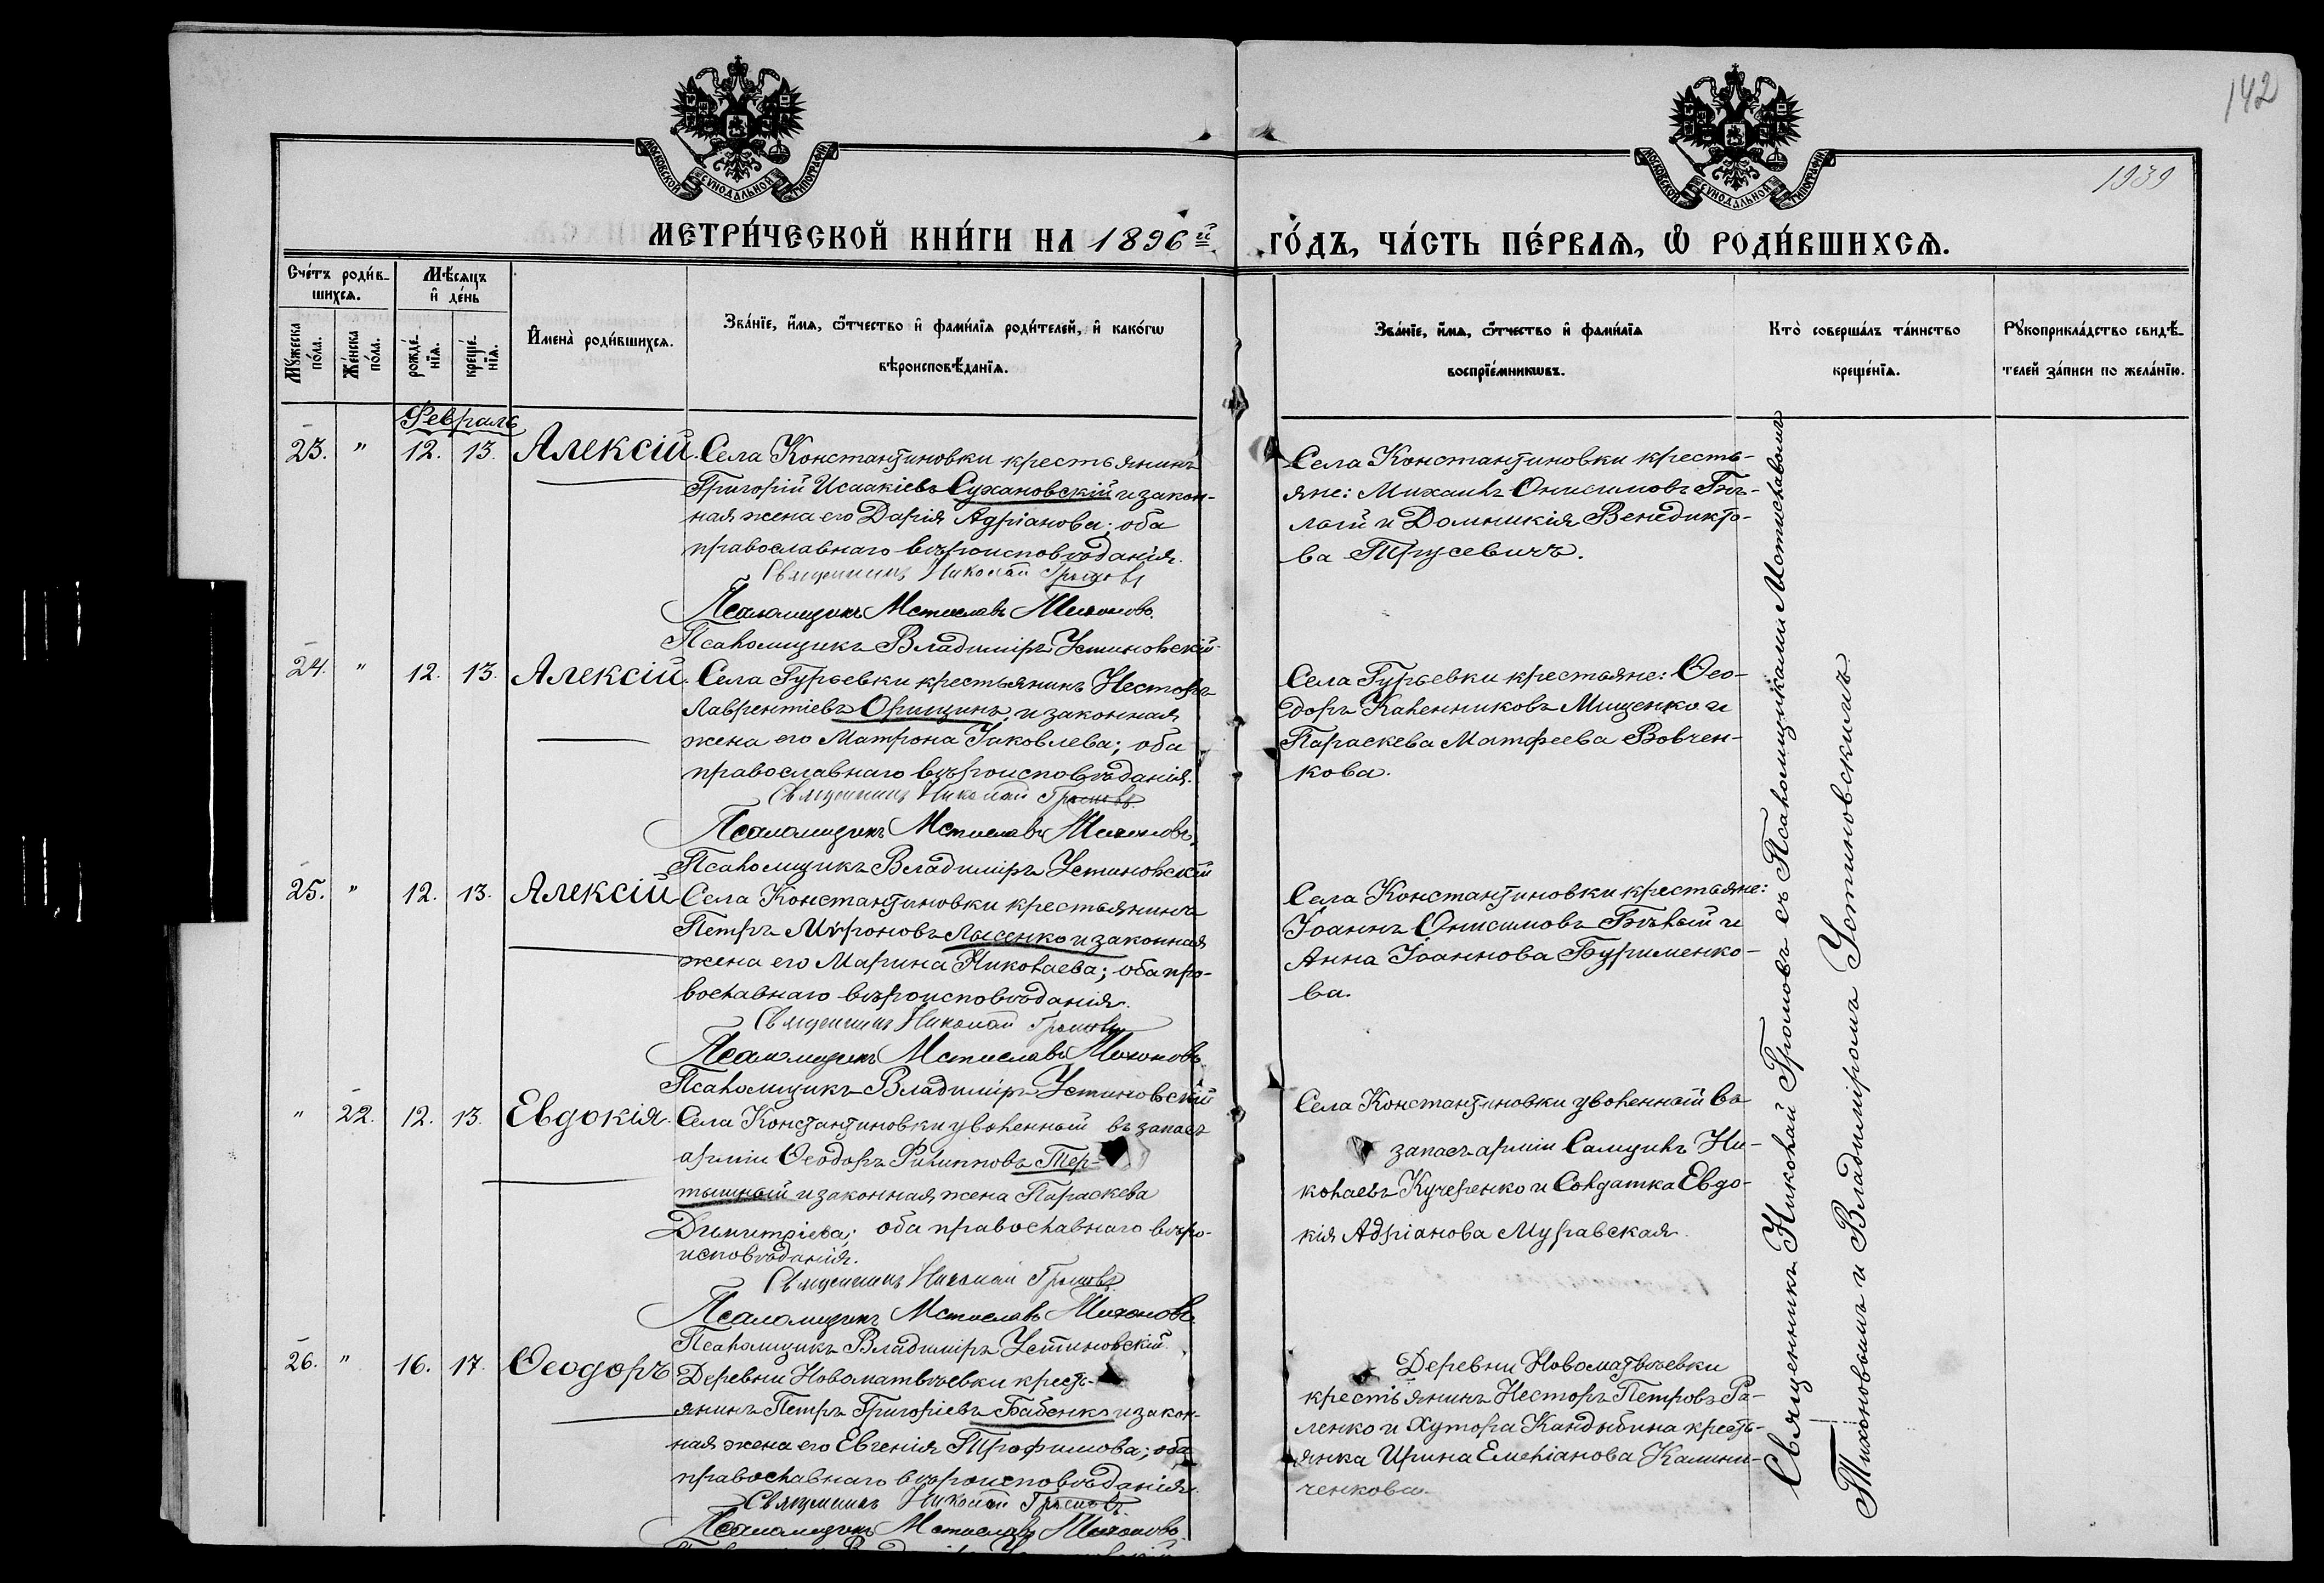 142
1939
МОСКОВСКОЙ СѴНОДАЛЬНОЙ ТИПОГРАФІИ
МОСКОВСКОЙ СѴНОДАЛЬНОЙ ТИПОГРАФІИ
МЕТРИ́ЧЕСКОЙ КНИ́ГИ НА 1896й ГО́ДЪ, ЧА́СТЬ ПЕ́РВАѦ, Ѡ҆ РОДИ́ВШИХСѦ.
Сче́тъ роди́в-
шихсѧ.
Мꙋ́жеска
по́ла.
Же́нска
по́ла.
Мѣ́сѧцъ
и҆ де́нь
рожде́-
нїѧ.
креще́-
нїѧ.
И҆мена̀ роди́вшихсѧ.
Зва́нїе, и҆́мѧ, ѻ҆́тчество и҆ фами́лїѧ роди́телей, и҆ како́гѡ
вѣроисповѣ́данїѧ.
Зва́нїе, и҆́мѧ, ѻ҆́тчество и҆ фами́лїѧ
воспрїе́мникѡвъ.
Кто̀ соверша́лъ та́инство
креще́нїѧ.
Рꙋкоприкла́дство свидѣ́-
телей за́писи по жела́нїю.
Февраль
23. " 12. 13. Алексій. Села Константиновки крестьянинъ
Григорій Исаакіевъ Сухановскій и закон-
ная жена его Дарія Адріанова; оба
православнаго вѣроисповѣданія.
Священникъ Николай Громовъ
Псаломщикъ Мстиславъ Тихоновъ.
Псаломщикъ Владиміръ Устиновскій
Села Константиновки кресть-
яне: Михаилъ Онисимовъ Бѣ-
лый и Домникія Венедикто-
ва Трусевичъ.
24. " 12. 13. Алексій. Села Гурьевки крестьянинъ Несторъ
Лаврентіевъ Орищинъ, и законная
жена его Матрона Іаковлева; оба
православнаго вѣроисповѣданія.
Священникъ Николай Громовъ
Псаломщикъ Мстиславъ Тихоновъ.
Псаломщикъ Владиміръ Устиновскій
Села Гурьевки крестьяне: Ѳео-
доръ Каленниковъ Мищенко и
Параскева Матфеева Вовчен-
кова.
25. " 12. 13. Алексій Села Константиновки крестьянинъ
Петръ Мѵроновъ Лысенко и законная
жена его Марина Николаева; оба пра-
вославнаго вѣроисповѣданія.
Священникъ Николай Громовъ
Псаломщикъ Мстиславъ Тихоновъ.
Псаломщикъ Владиміръ Устиновскій
Села Константиновки крестьяне:
Іоаннъ Онисимовъ Бѣлый и
Анна Іоаннова Бурименко-
ва.
" 22. 12. 13. Евдокія. Села Константиновки уволенный въ запасъ
арміи Ѳеодоръ Филипповъ Тер-
тышный и законная жена Параскева
Димитріева; оба православнаго вѣро-
исповѣданія.
Священникъ Николай Громовъ
Псаломщикъ Мстиславъ Тихоновъ
Псаломщикъ Владиміръ Устиновскій
Села Константиновки уволенный въ
запасъ арміи Ни-
колаевъ Кучеренко и Солдатка Евдо-
кія Адріанова Муравская.
26. " 16. 17. Ѳеодоръ Деревни Новоматвѣевки кресть-
янинъ Петръ Григоріевъ Бабенко и закон-
ная жена его Евгенія Трофимова; оба
православнаго вѣроисповѣданія.
Священникъ Николай Громовъ
Псаломщикъ Мстиславъ Тихоновъ
Деревни Новоматвѣевки
крестьянинъ Несторъ Петровъ Га-
ленко и Хутора Кандыбина кресть-
янка Ирина Емеліанова Калини-
ченкова.
Священникъ Николай Громовъ съ Псаломщиками Мстиславомъ
Тихоновымъ и Владиміромъ Устиновскимъ.